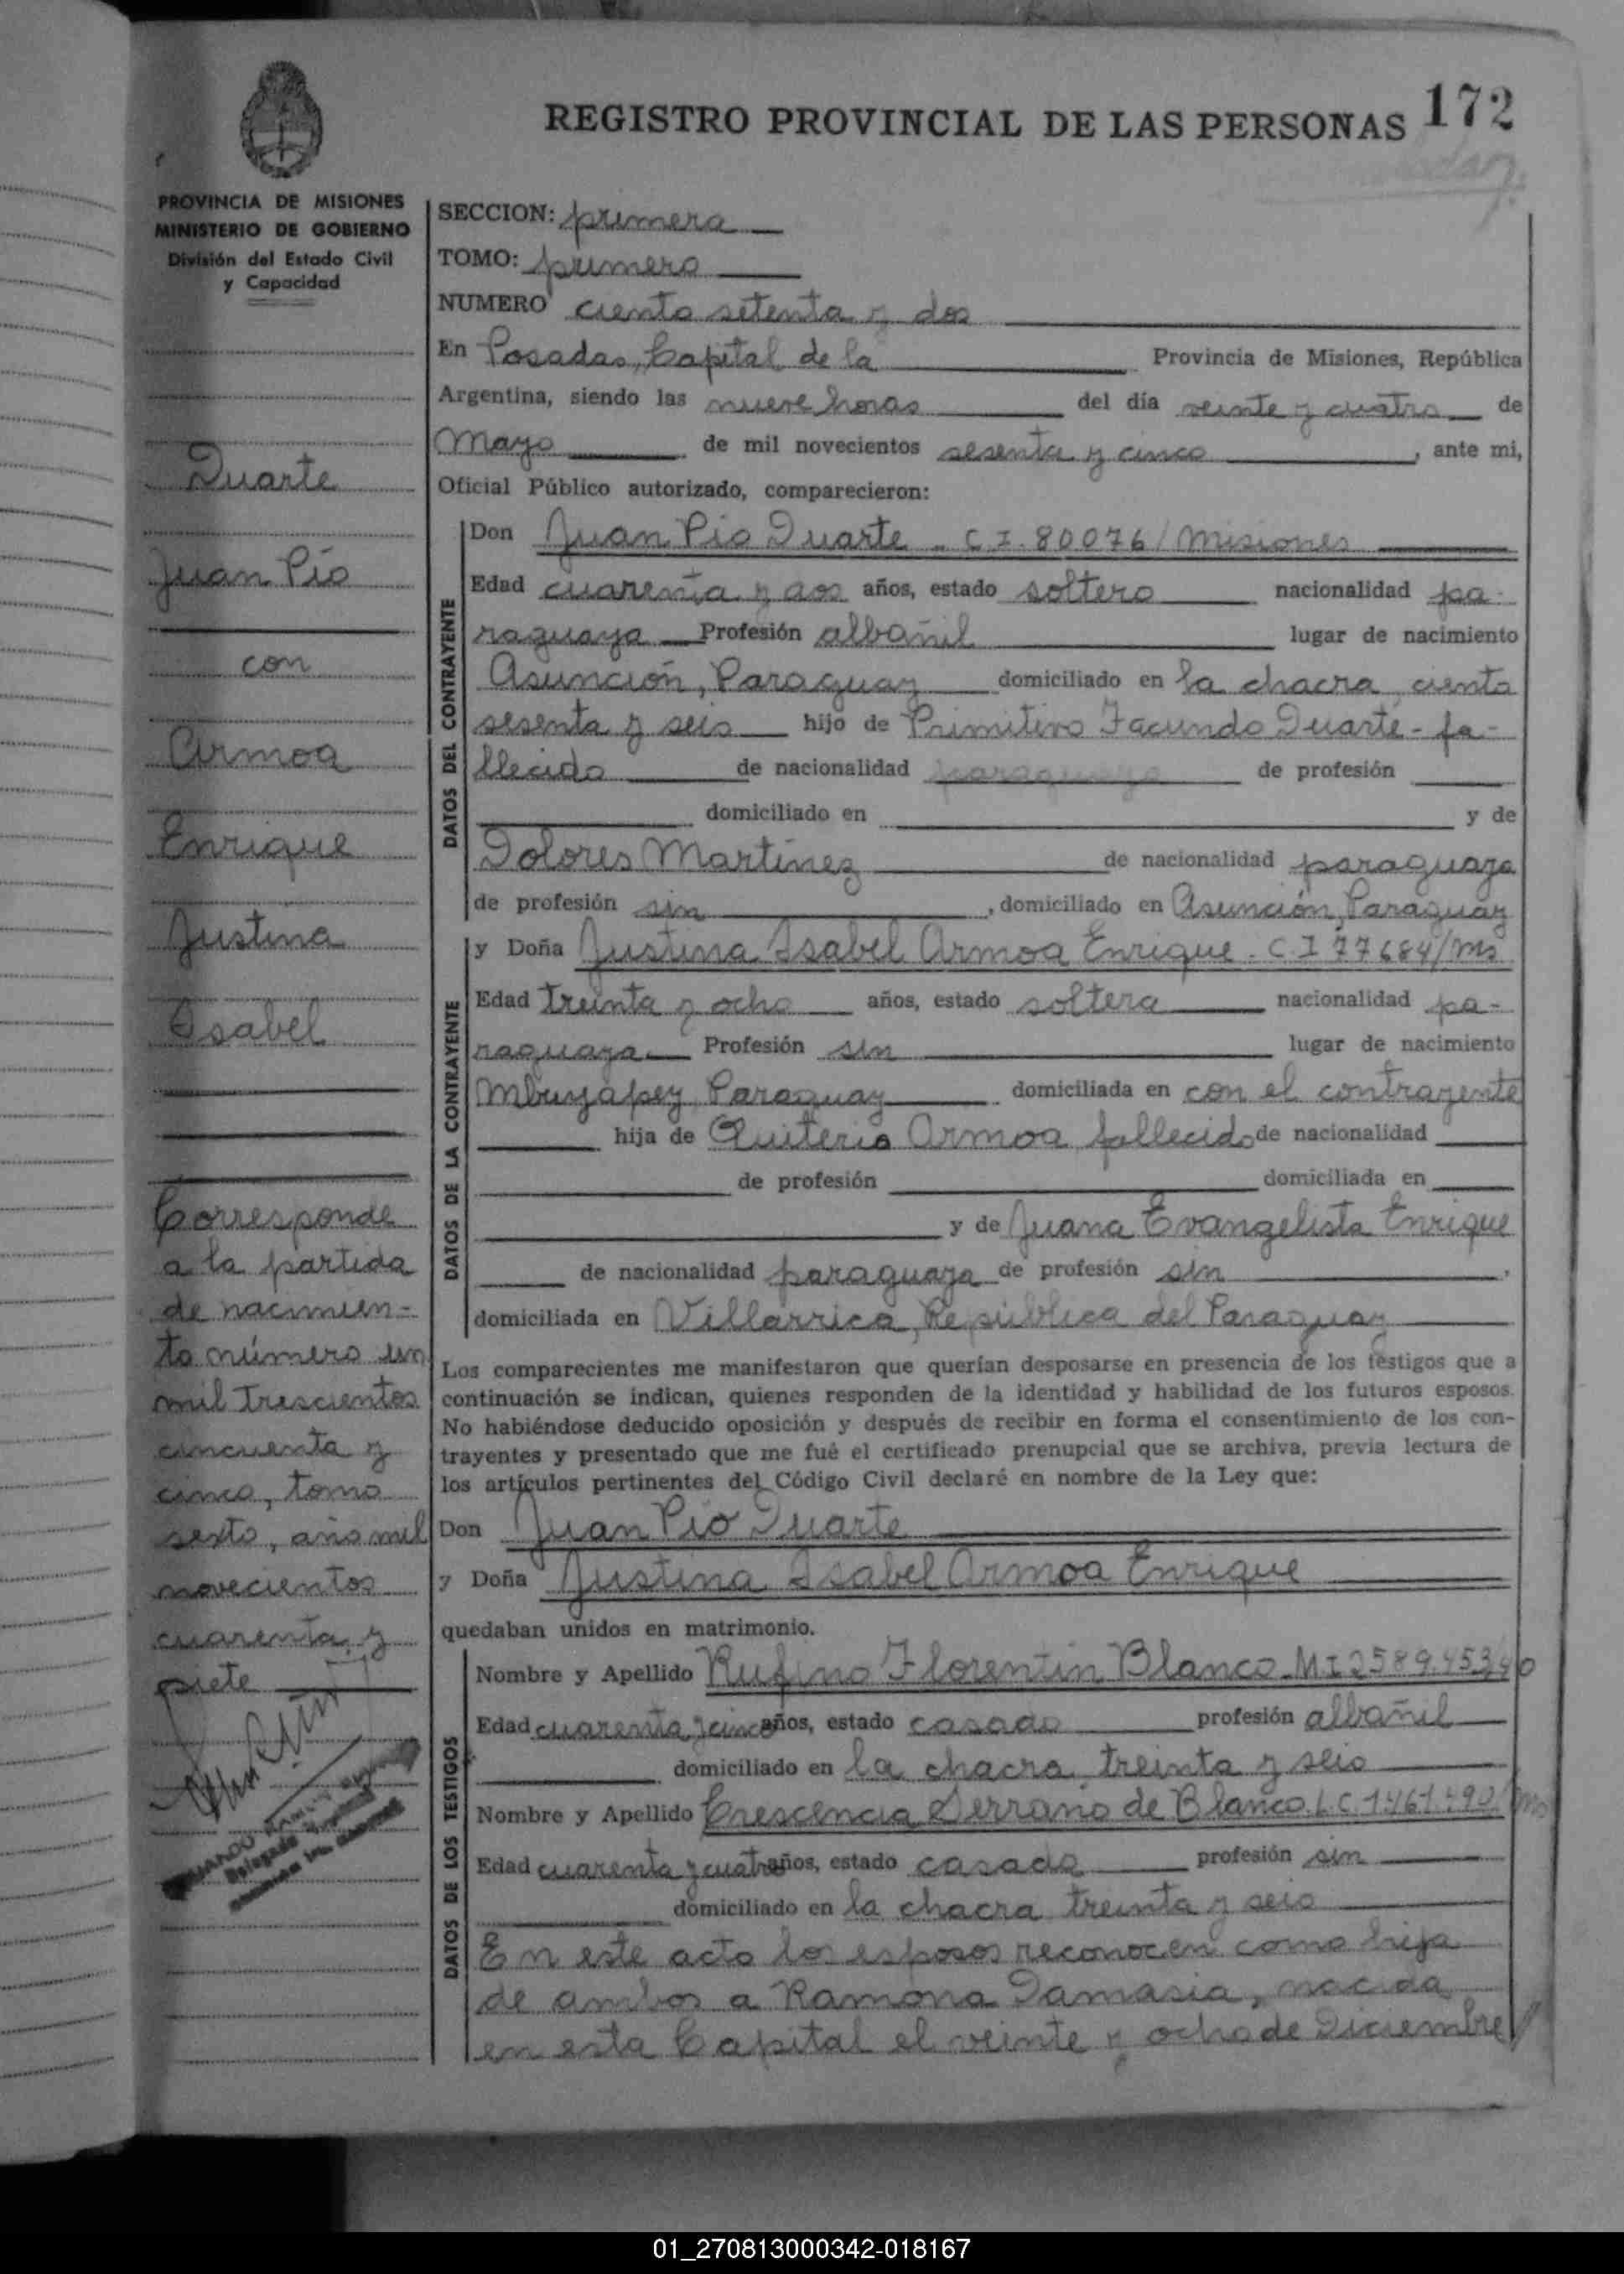 REGISTRO PROVINCIAL DE LAS PERSONAS 172
PROVINCIA DE MISIONES
MINISTERIO DE GOBIERNO
División del Estado Civil
y Capacidad
Duarte
Juan Pío
con
Armoa
Enrique
Justina
Isabel
Corresponde
a la partida
de nacimien-
to número un
mil trescientos
cincuenta y
cinco, tomo
sexto, año mil
novecientos
cuarenta y
siete
SECCION: primera
TOMO: primero
NUMERO ciento setenta y dos
En Posadas, Capital de la Provincia de Misiones, República
Argentina, siendo las nueve horas del día veinte y cuatro de
Mayo de mil novecientos sesenta y cinco, ante mi,
Oficial Público autorizado, comparecieron:
DATOS DEL CONTRAYENTE
Don Juan Pío Duarte - C I. 80076/Misiones
Edad cuarenta y dos años, estado soltero nacionalidad pa-
raguaya Profesión albañil lugar de nacimiento
Asunción, Paraguay domiciliado en la chacra ciento
sesenta y seis hijo de Primitivo Facundo Duarte - fa-
llecido de nacionalidad paraguaya de profesión
domiciliado en y de
Dolores Martínez de nacionalidad paraguaya
de profesión sin, domiciliado en Asunción, Paraguay
DATOS DE LA CONTRAYENTE
y Doña Justina Isabel Armoa Enrique - C I 77684/Ms
Edad treinta y ocho años, estado soltera nacionalidad pa-
raguaya Profesión sin lugar de nacimiento
Mbuyapey, Paraguay domiciliada en con el contrayente
hija de Quiterio Armoa, fallecido de nacionalidad
de profesión domiciliada en
y de Juana Evangelista Enrique
de nacionalidad paraguaya de profesión sin,
domiciliada en Villarrica, República del Paraguay
Los comparecientes me manifestaron que querían desposarse en presencia de los testigos que a
continuación se indican, quienes responden de la identidad y habilidad de los futuros esposos.
No habiéndose deducido oposición y después de recibir en forma el consentimiento de los con-
trayentes y presentado que me fué el certificado prenupcial que se archiva, previa lectura de
los artículos pertinentes del Código Civil declaré en nombre de la Ley que:
Don Juan Pío Duarte
y Doña Justina Isabel Armoa Enrique
quedaban unidos en matrimonio.
DATOS DE LOS TESTIGOS
Nombre y Apellido Rufino Florentin Blanco - MI
Edad cuarenta y cinco años, estado casado profesión albañil
domiciliado en la chacra treinta y seis
Nombre y Apellido Crescencia Serrano de Blanco. L.C. 1.461.490/Ms
Edad cuarenta y cuatro años, estado casada profesión sin
domiciliado en la chacra treinta y seis
En este acto los esposos reconocen como hija
de ambos a Ramona Damasia, nacida
en esta Capital el veinte y ocho de Diciembre
01_270813000342-018167